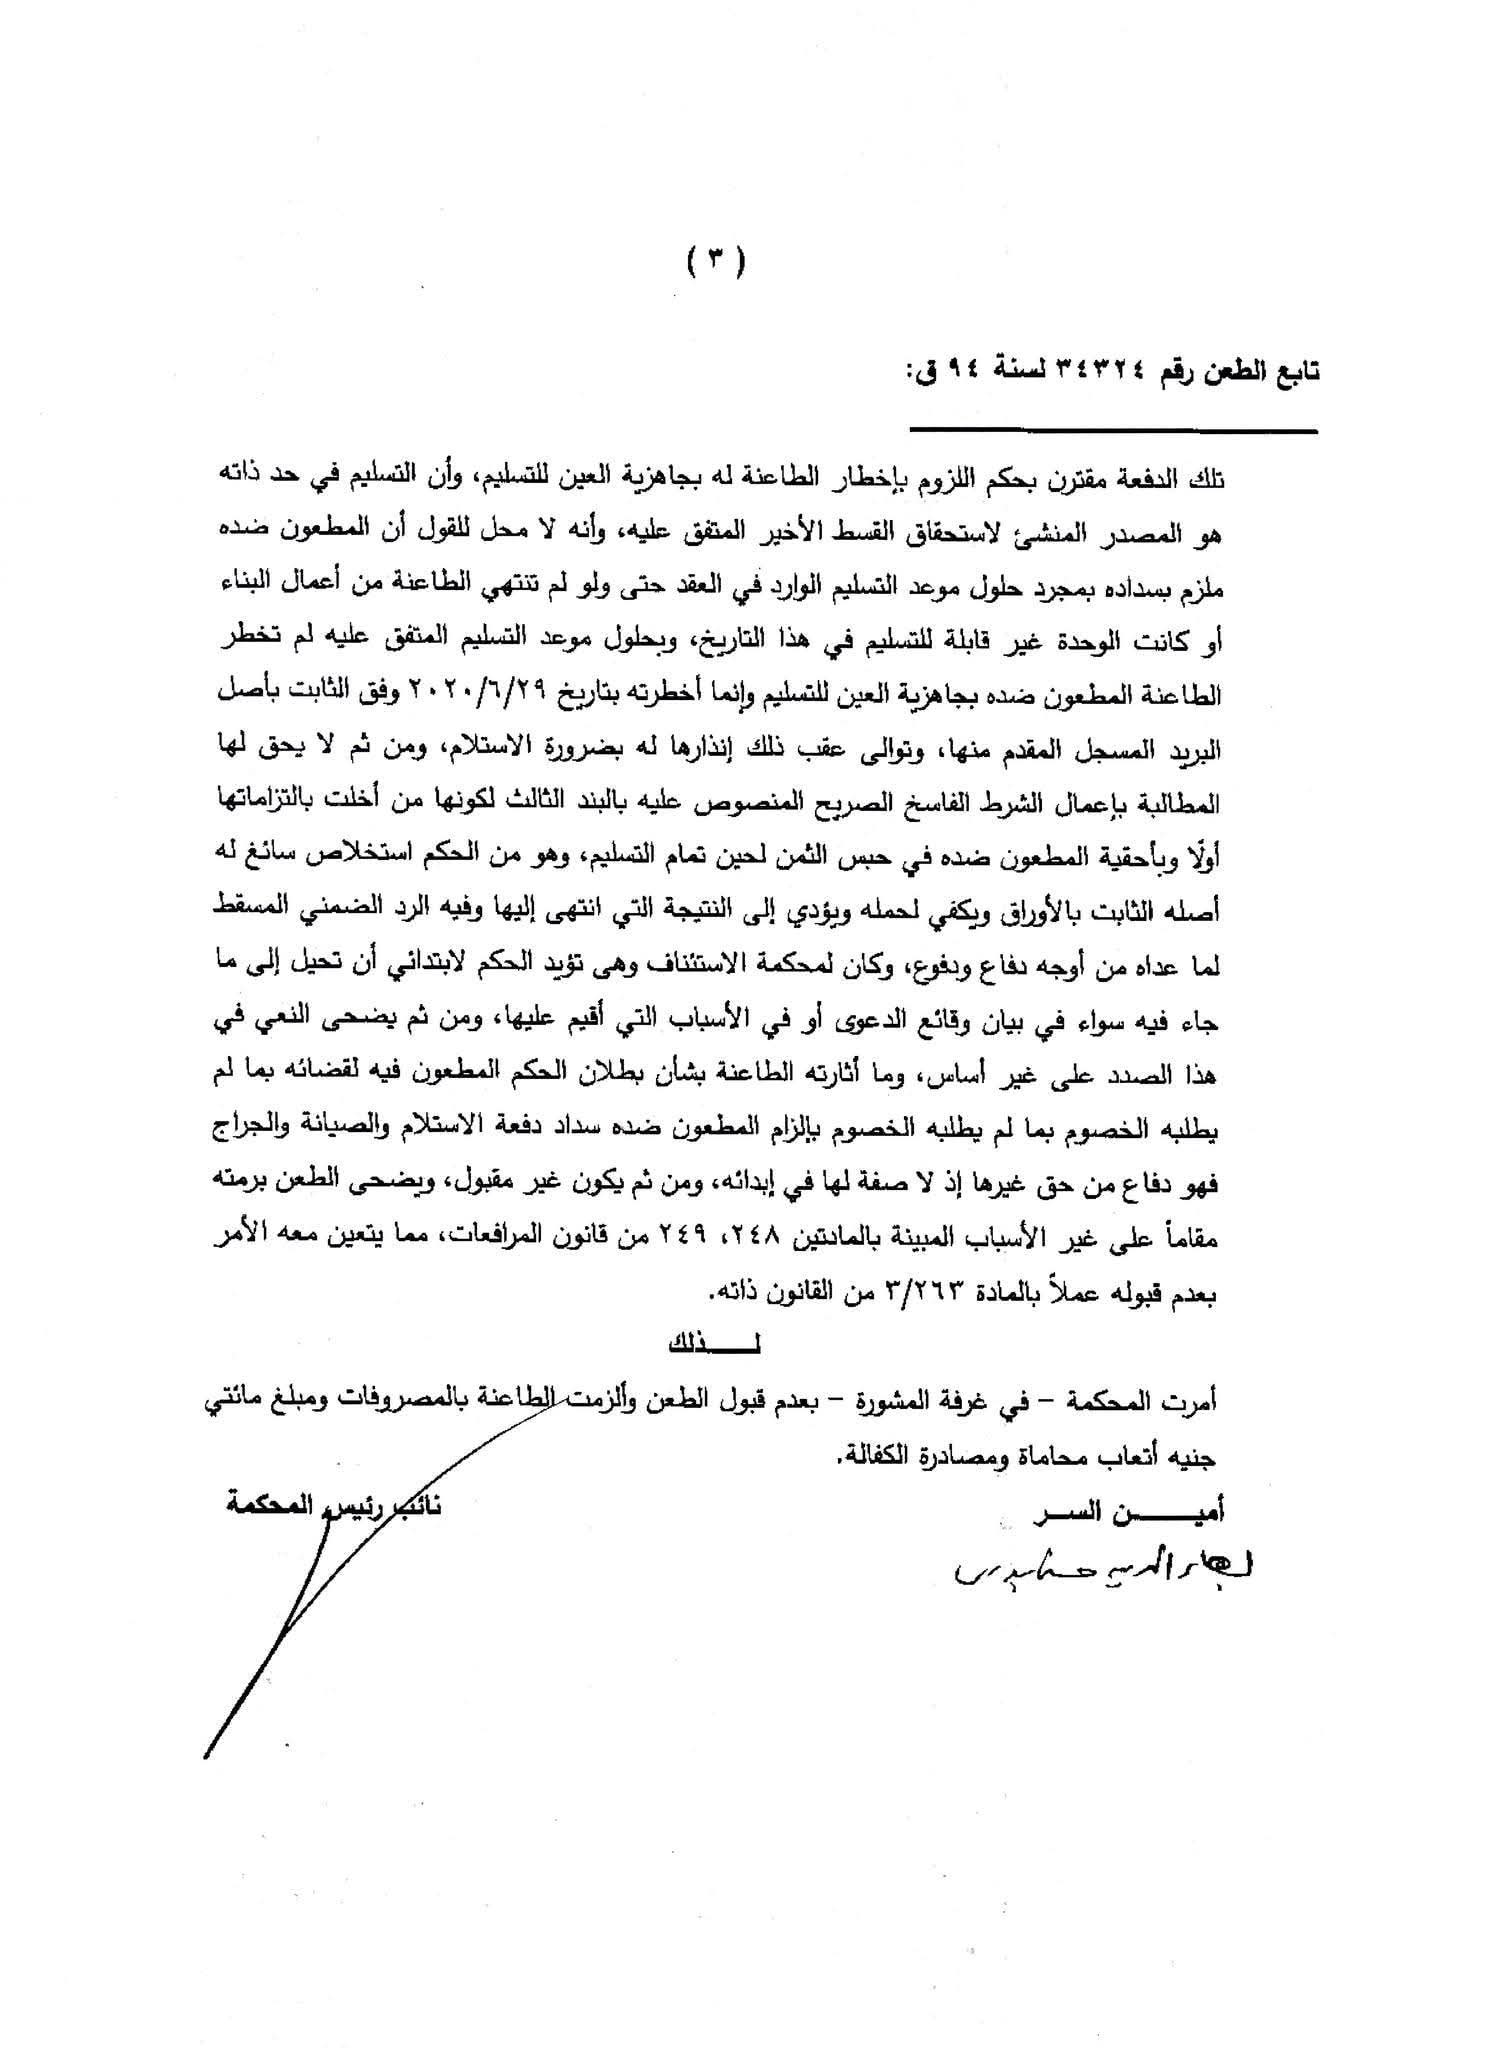 ( ٣ )
تابع الطعن رقم ٣٤٣٢٤ لسنة ٩٤ ق:
تلك الدفعة مقترن بحكم اللزوم بإخطار الطاعنة له بجاهزية العين للتسليم، وأن التسليم في حد ذاته
هو المصدر المنشئ لاستحقاق القسط الأخير المتفق عليه، وأنه لا محل للقول أن المطعون ضده
ملزم بسداده بمجرد حلول موعد التسليم الوارد في العقد حتى ولو لم تنتهي الطاعنة من أعمال البناء
أو كانت الوحدة غير قابلة للتسليم في هذا التاريخ، وبحلول موعد التسليم المتفق عليه لم تخطر
الطاعنة المطعون ضده بجاهزية العين للتسليم وإنما أخطرته بتاريخ ٢٠٢٠/٦/٢٩ وفق الثابت بأصل
البريد المسجل المقدم منها، وتوالى عقب ذلك إنذارها له بضرورة الاستلام، ومن ثم لا يحق لها
المطالبة بإعمال الشرط الفاسخ الصريح المنصوص عليه بالبند الثالث لكونها من أخلت بالتزاماتها
أولًا وبأحقية المطعون ضده في حبس الثمن لحين تمام التسليم، وهو من الحكم استخلاص سائغ له
أصله الثابت بالأوراق ويكفي لحمله ويؤدي إلى النتيجة التي انتهى إليها وفيه الرد الضمني المسقط
لما عداه من أوجه دفاع ودفوع، وكان لمحكمة الاستئناف وهى تؤيد الحكم لابتدائي أن تحيل إلى ما
جاء فيه سواء في بيان وقائع الدعوى أو في الأسباب التي أقيم عليها، ومن ثم يضحى النعي في
هذا الصدد على غير أساس، وما أثارته الطاعنة بشأن بطلان الحكم المطعون فيه لقضائه بما لم
يطلبه الخصوم بما لم يطلبه الخصوم بإلزام المطعون ضده سداد دفعة الاستلام والصيانة والجراج
فهو دفاع من حق غيرها إذ لا صفة لها في إبدائه، ومن ثم يكون غير مقبول، ويضحى الطعن برمته
مقاماً على غير الأسباب المبينة بالمادتين ٢٤٨، ٢٤٩ من قانون المرافعات، مما يتعين معه الأمر
بعدم قبوله عملاً بالمادة ٣/٢٦٣ من القانون ذاته.
لـــــذلك
أمرت المحكمة – في غرفة المشورة – بعدم قبول الطعن وألزمت الطاعنة بالمصروفات ومبلغ مائتي
جنيه أتعاب محاماة ومصادرة الكفالة.
أميـــــن الســر
نائب رئيس المحكمة